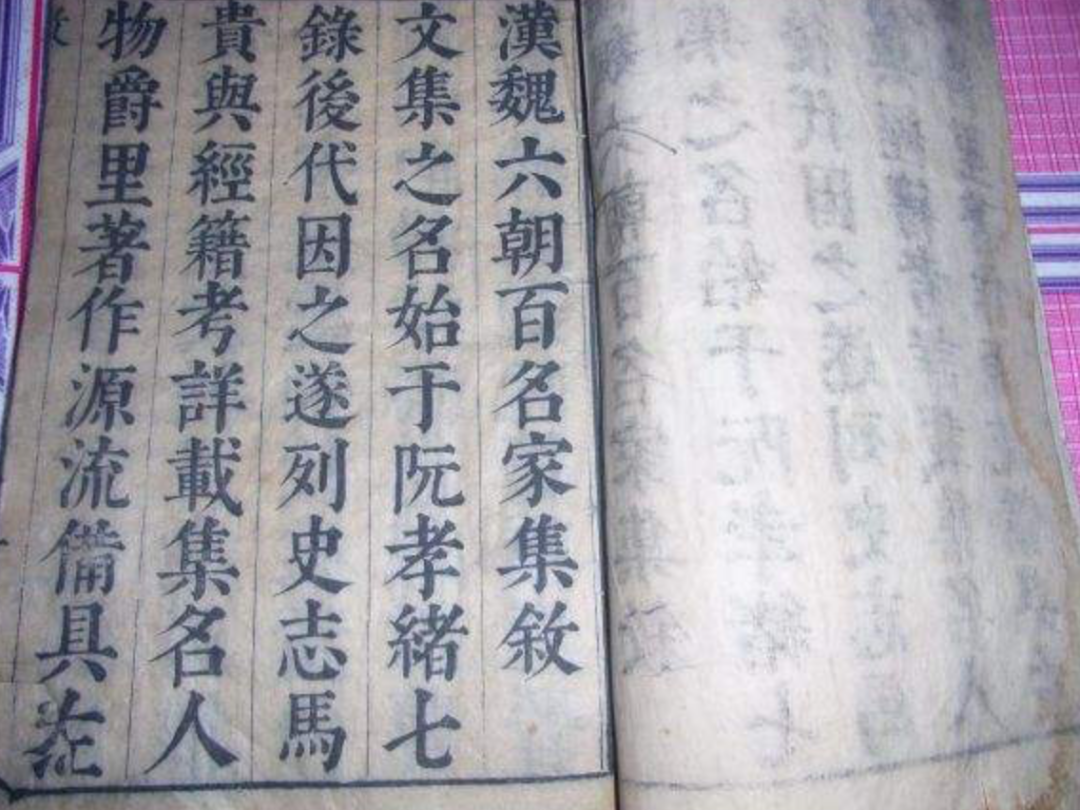 漢魏六朝百名家集敘
文集之名始于阮孝緒七
錄後代因之遂列史志馬
貴與經籍考詳載集名人
物爵里著作源流備具